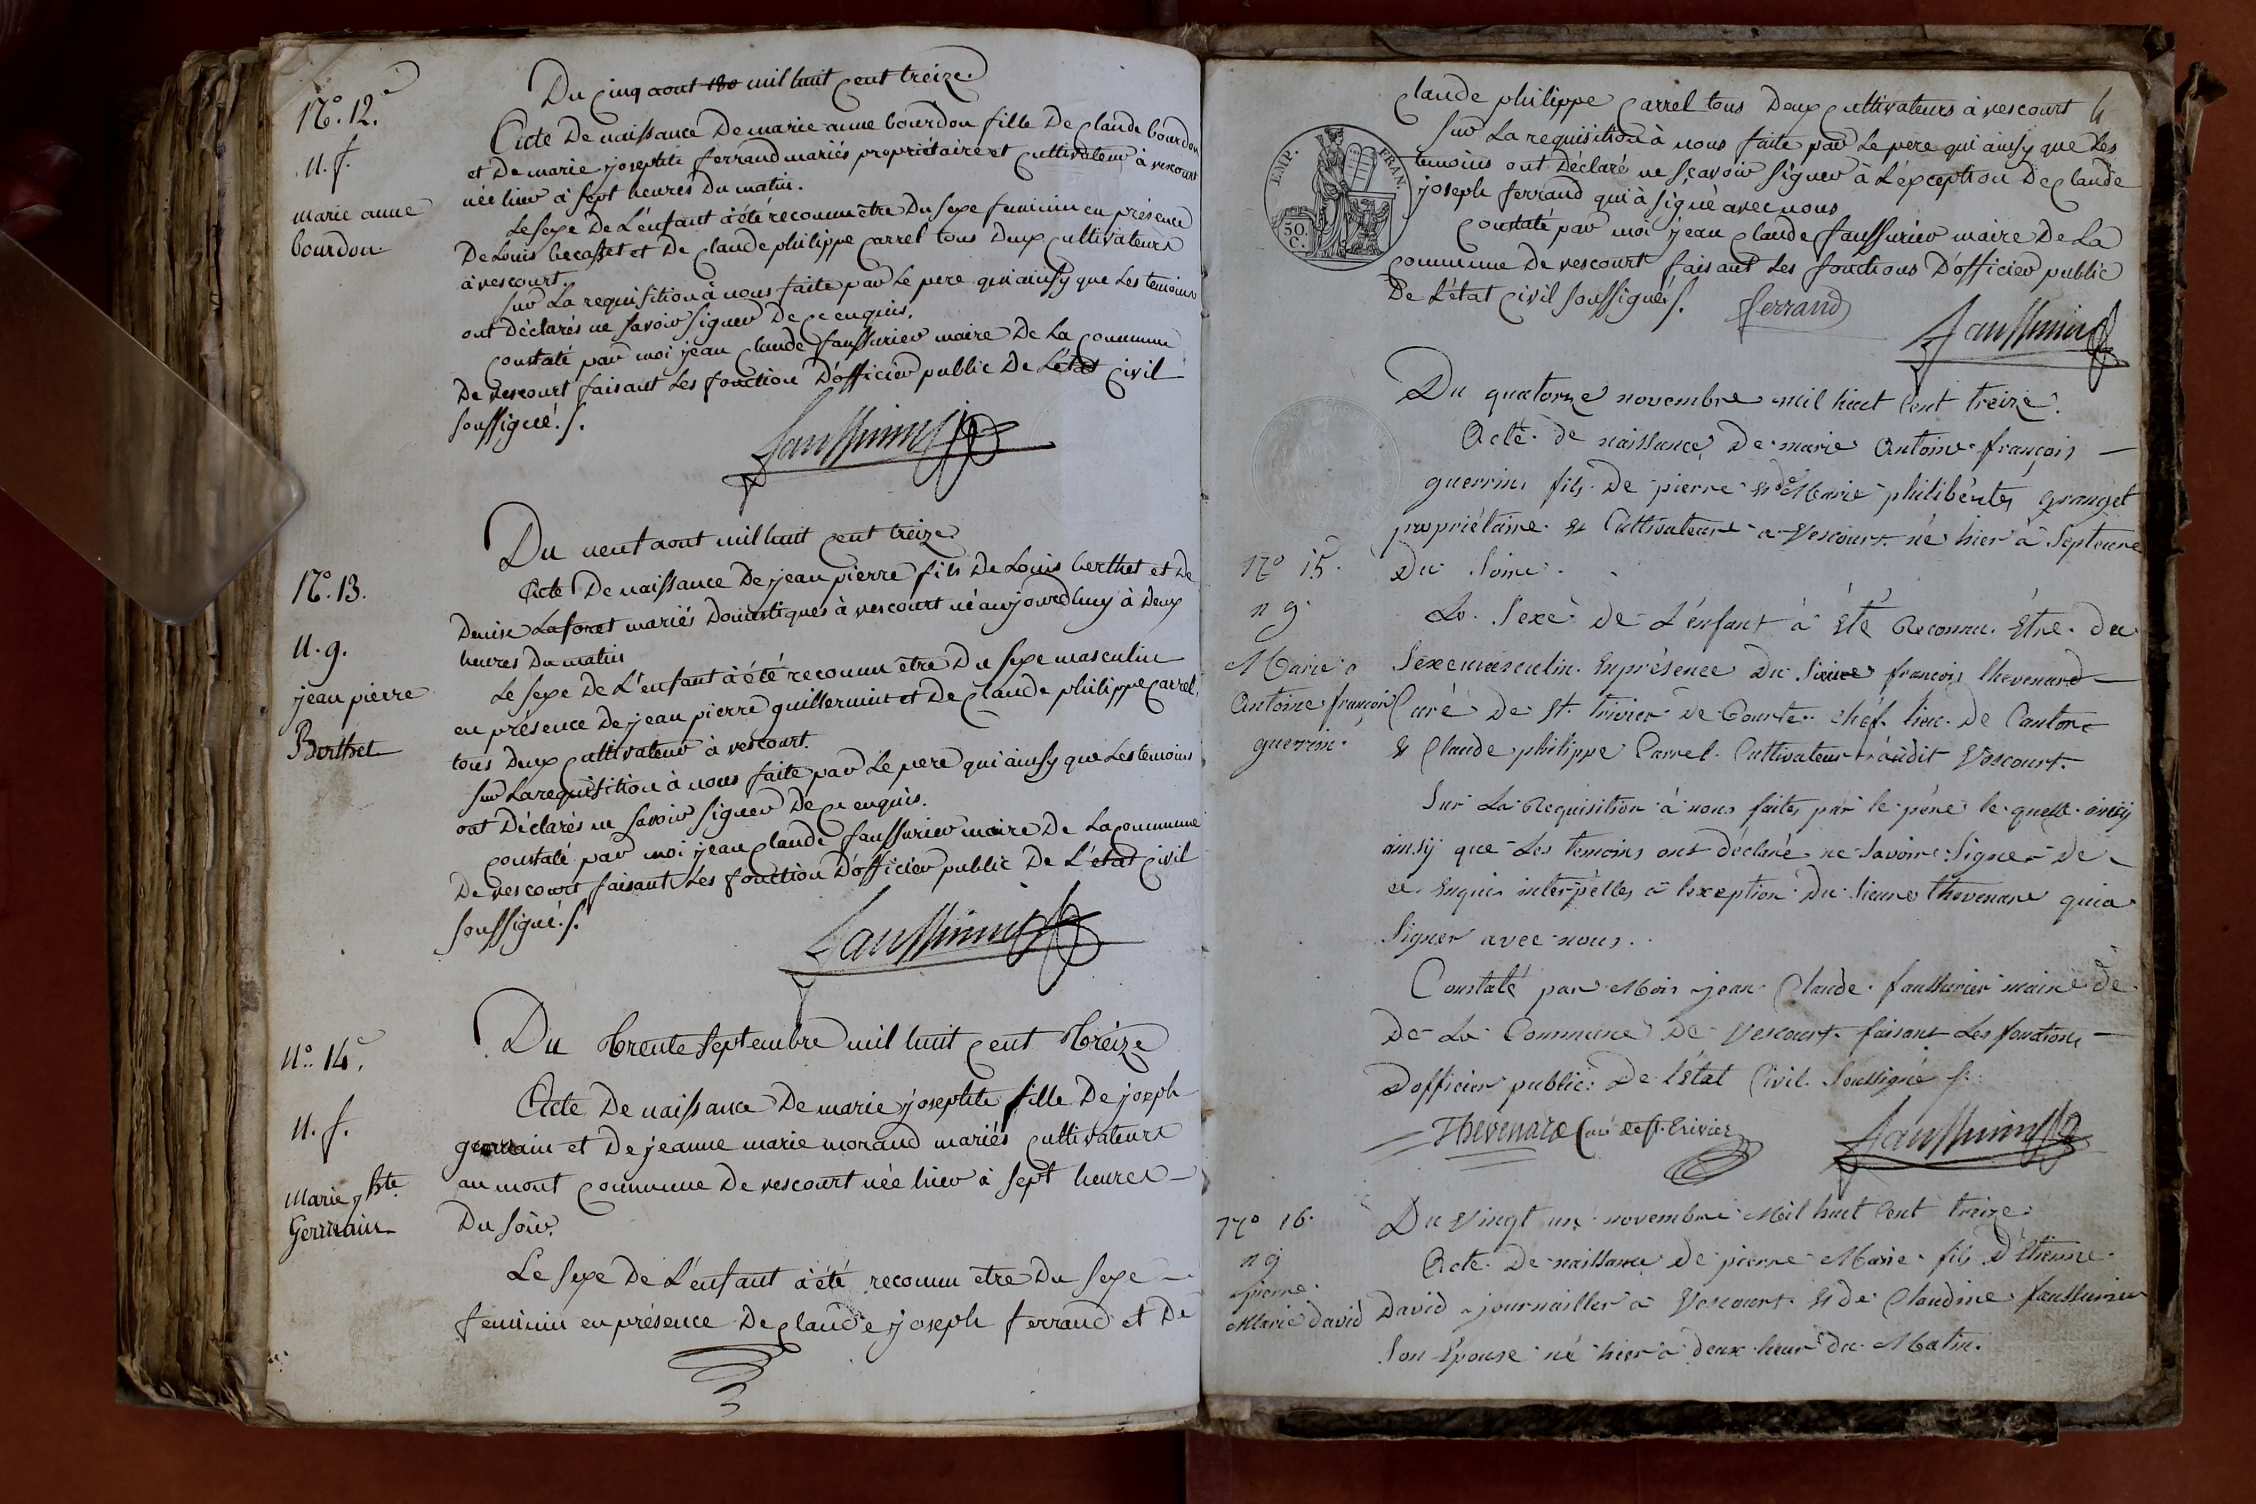 N.o 12.e
n. f.
marie anne
bourdon
Du cinq aout 180 mil huit cent treize
Acte De naissance De marie anne bourdon fille De claude bourdon
et De marie josephte ferrand mariés propriétaire et cultivateur à vescourt
née hier à sept heures Du matin.
Le sexe De L'enfant à été reconnu être Du sexe feminin en présence
De Louis becasset et De claude philippe carrel tous Deux cultivateurs
à vescourt.
sur La requisition à nous faite par Le pere qui ainsy que Les temoins
ont Déclarés ne savoir signer De ce enquis.
constaté par moi jean claude faussurier maire De La commune
De vescourt faisant Les fonction D'officier public De L'état civil
soussigné. /.
faussurier
N.o 13.
n. g.
jean pierre
Berthet
Du neuf aout mil huit cent treize
Acte De naissance De jean pierre fils De Louis berthet et De
Denise Laforet mariés Domestiques à vescourt né aujourdhuy à Deux
heures Du matin
Le sexe De L'enfant à été reconnu etre Du sexe masculin
en présence De jean pierre guillermint et De claude philippe carrel,
tous Deux cultivateur à vescourt.
sur La requisition à nous faite par Le pere qui ainsy que Les temoins
ont Déclarés ne savoir signer De ce enquis.
constaté par moi jean claude faussurier maire De La commune
De vescourt faisant Les fonction D'officier public De L'etat civil
soussigné. /.
faussurier
N.o 14.e
n. f.
Marie jhte
Germain
Du trente septembre mil huit cent treize
Acte De naissance De marie josephte fille De joseph
germain et De jeanne marie morand mariés cultivateurs
au mont commune De vescourt née hier à sept heures
Du soir.
Le sexe De L'enfant à été reconnu etre Du sexe
feminin en présence De claude joseph ferrand et De
claude philippe carrel tous Deux cultivateurs à vescourt
sur La requisition à nous faite par Le pere qui ainsy que Les
temoins ont Déclaré ne sçavoir signer à L'exception De claude
joseph ferrand qui à signé avec nous
constaté par moi jean claude faussurier maire De La
commune De vescourt faisant Les fonctions D'officier public
De L'état civil soussigné /.
EMP. FRAN.
50.
C.
ferrand
faussurier
Du quatorze novembre mil huit Cent treize.
Acte de naissance De marie Antoine françois
guerrin fils De pierre & de Marie philiberte granget
propriétaire & Cultivateur a Vescourt né hier à Septeure
Du Soire.
N.o 15.
n g.
Marie
Antoine françois
guerrin.
Le Sexe De L'enfant à Eté Reconnu Etre du
Sexe masculin. En présence Du Sieur françois thevenard
Curé De St. trivier De Courte chef lieu De Canton
& Claude philippe Carrel Cultivateur audit Vescourt.
Sur La Requisition à nous faite par le père le quelle
ainsy que Les temoins ont déclaré ne Savoire Signer De
ce Enquis interpelles à lexception Du Sieur thevenard quia
Signer avec nous.
Constaté par Moi jean Claude faussurier maire de
De La Commune De Vescourt faisant Les fonctions
Dofficier public De l'Etat Civil Soussigné /.
Thevenard Curé de St. Trivier
faussurier
N.o 16.
n g
pierre
Marie David
Du Vingt un novembre Mil huit Cent treize.
Acte De naissance De pierre Marie fils D'Etienne
David journailler a Vescourt & De Claudine faussurier
Son Epouse né hier à deux heur du Matin.